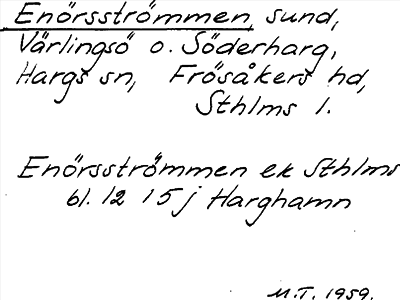 Enörsströmmen, sund,
Värlingsö o. Söderharg,
Hargs sn, Frösåkers hd,
Sthlms l.
Enörsströmmen ek Sthlms
bl. 12 I 5 j Harghamn
M.T. 1959.